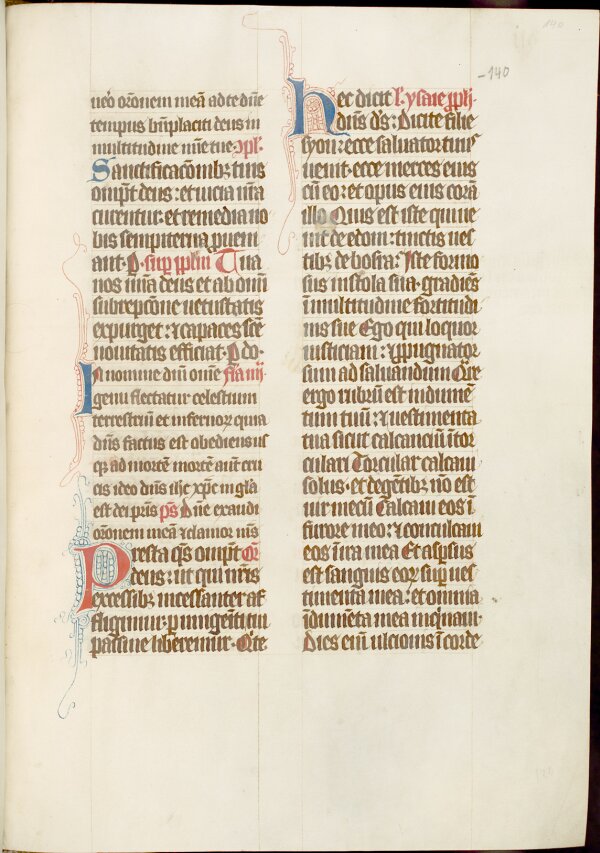 140
-140
ueō orōnem meā ad te dn̄e
tempus bn̄placiti deus in
multitudine mīe tue · 9pl̄
Sanctificacōnibꝫ tuis
omp̄t deus : et uicia nr̄a
curentur : et remedia no
bis sempiterna ꝓueni
ant · P sup̄ pplm̄ Tua
nos mīa deus et ab omī
subrepcōne uetustatis
expurget : ⁊ capaces scē
nouitatis efficiat · P do ·
In nomine dn̄i omē fla iiij
genu flectatur celestium
terrestriū et infernoꝝ quia
dn̄s factus est obediens us
qꝫ ad mortē mortē aut̄ cru
cis ideo dn̄s ihc̄ xp̄c in glā
est dei pr̄is ps̄ Dn̄e exaudi
orōnem meā ⁊ clamor m̄s
Presta qs̄ omp̄t Or̄
deus : ut qui nr̄is
excessibꝫ incessanter af
fligimur · p unigenitū tui
passione liberemur · Qr̄te
Hec dicit l · ysaie ꝓph̄ ·
dn̄s ds̄ : Dicite filie
syon : ecce saluator tuus
uenit · ecce merces eius
cū eo : et opus eius corā
illo Quis est iste qui ue
nit de edom : tinctis ues
tibꝫ de bosra : Iste formo
sus in stola sua · gradiēs
ī multitudine fortitudi
nis sue Ego qui loquor
iusticiam : ⁊ ꝓpugnator
sum ad saluandum Qr̄e
ergo rubrū est indumē
tum tuū : ⁊ uestimenta
tua sicut calcanciū ī tor
culari Torcular calcaui
solus · et de gentibꝫ nō est
uir mecū Calcaui eos ī
furore meo : ⁊ conculcaui
eos ī ira mea Et aspsus
est sanguis eoꝝ sup ues
timenta mea : et omnia
īdumēta mea inquinaui ·
Dies enī ulcionis ī corde